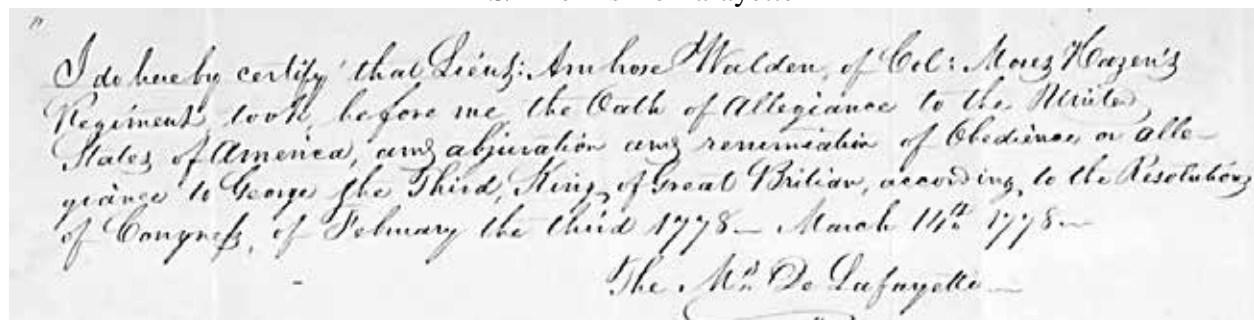 "
I do hereby certify that Lieut: Ambrose Walden, of Col: Moses Hazen's
Regiment, took before me the Oath of Allegiance to the United
States of America, and abjuration and renunciation of Obedience or alle-
giance to George the Third, King, of Great Britian, according, to the Resolution,
of Congress, of February the third 1778— March 14th 1778—
The Mis De Lafayette—